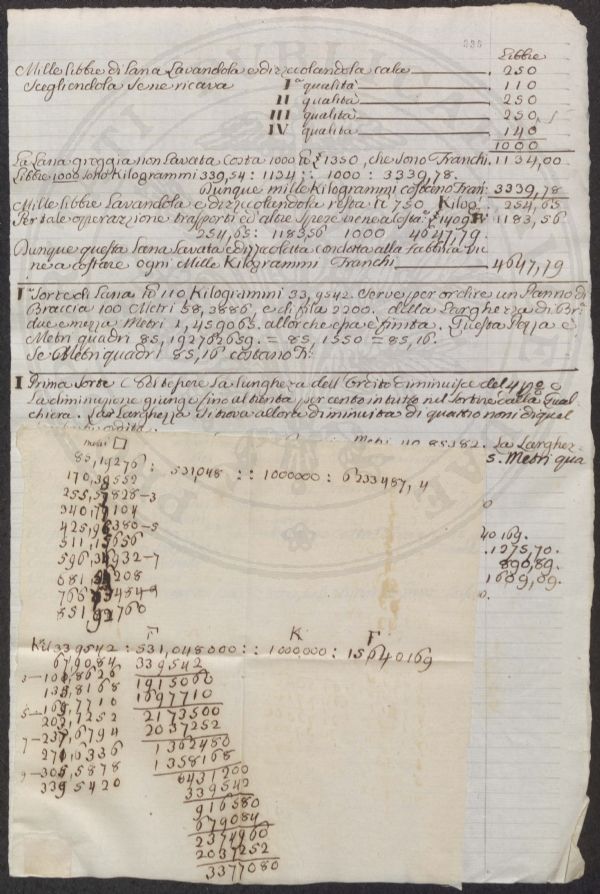 Libbre
Mille libbre di Lana Lavandola e dizzocolandola cala 250
Scegliendola se ne ricava I.a qualità 110
II qualità 250
III qualità 250
IV qualità 140
1000
La Lana greggia non Lavata costa 1000 lb 1350, che sono Franchi 1134,00
Libbre 1000 sono Kilogrammi 339,54 : 1134 :: 1000 : 3339,78.
Dunque mille Kilogrammi costano Fran: 3339,78
Mille libbre Lavandola e dizzocolandola resta lb 750 Kilog. 254,65
Per tale operazione trasporti ed altre spese viene a costa: 1409 1183,56
254,65 : 118356 1000 4647,79.
Dunque questa Lana Lavata e condotta alla fabbrica vie
ne a costare ogni Mille Kilogrammi Franchi 4647,79
I.a Sorte di Lana lb 110 Kilogrammi 33,9542. Serve per ordire un Panno di
Braccia 100 Metri 58,3886, e di fila 2200. della Larghezza di Br.a
due e mezza Metri 1,459065. allorche essa è finita. Questa Pezza è
Metri quadri 85,192762659. = 85,1550 = 85,16.
Se Metri quadri 85,16 costano
I Prima Sorte la lunghezza dell'Ordito diminuisce del 4 per 0
La diminuzione giunge fino al trenta per cento in tutto nel sortire dalla Gual
chiera. La Larghezza si trova allora diminuita di quattro noni di quel
Metri 40,85382. La Larghez-
5. Metri qua
40169.
1275,70.
890,89.
1609,09.
metri □
85,19276 : 531,048 :: 1000000 : 6233487,4
170,38552
255,57828-3
340,77104
425,96380-5
511,15656
596,34932-7
681,54208
766,73484-9
851,92760
F K F
Kil 339542 : 531,048000 :: 1000000 : 15640169
679084
3-1018626
1358168
5-1697710
2037252
7-2376794
2716336
9-3055878
3395420
339542
1915060
1697710
2173500
2037252
1362480
1358168
6431200
339542
916580
679084
2374960
2037252
3377080